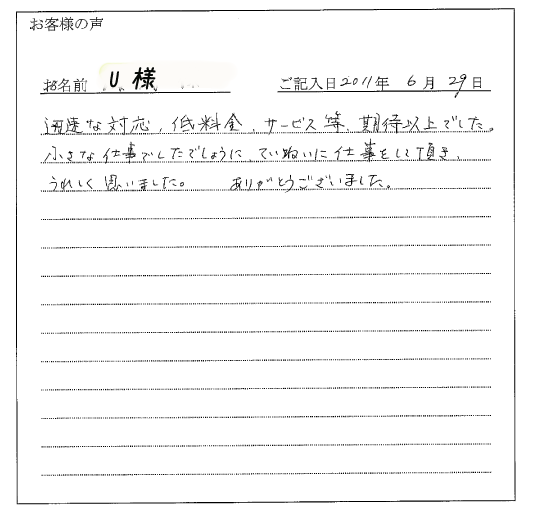 お客様の声
お名前 U 様 ご記入日2011年 6月 29日
迅速な対応、低料金、サービス等、期待以上でした。
小さな仕事でしたでしょうに、ていねいに仕事をして頂き、
うれしく思いました。 ありがとうございました。